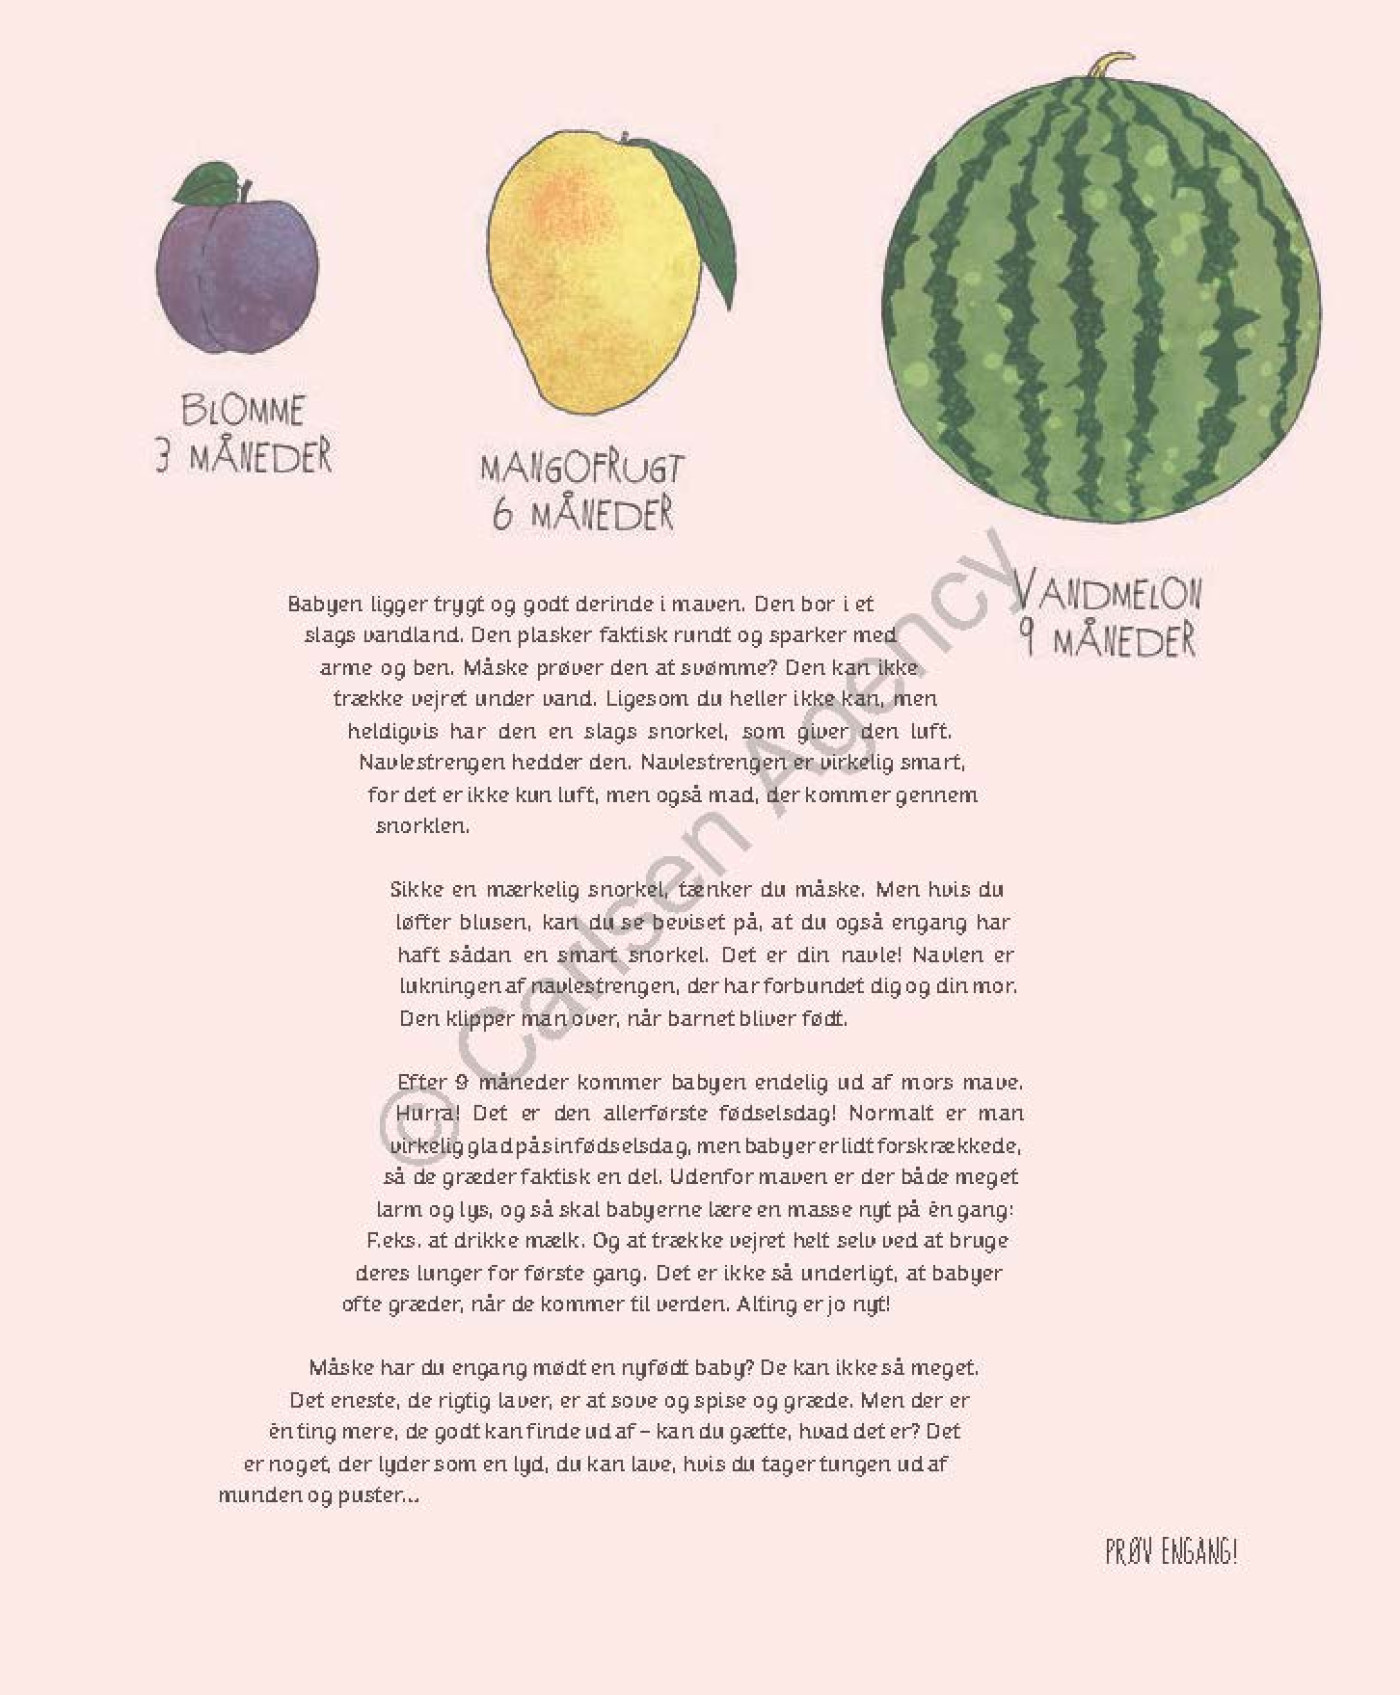 BLOMME
3 MÅNEDER
MANGOFRUGT
6 MÅNEDER
VANDMELON
9 MÅNEDER
Babyen ligger trygt og godt derinde i maven. Den bor i et
slags vandland. Den plasker faktisk rundt og sparker med
arme og ben. Måske prøver den at svømme? Den kan ikke
trække vejret under vand. Ligesom du heller ikke kan, men
heldigvis har den en slags snorkel, som giver den luft.
Navlestrengen hedder den. Navlestrengen er virkelig smart,
for det er ikke kun luft, men også mad, der kommer gennem
snorklen.
Sikke en mærkelig snorkel, tænker du måske. Men hvis du
løfter blusen, kan du se beviset på, at du også engang har
haft sådan en smart snorkel. Det er din navle! Navlen er
lukningen af navlestrengen, der har forbundet dig og din mor.
Den klipper man over, når barnet bliver født.
Efter 9 måneder kommer babyen endelig ud af mors mave.
Hurra! Det er den allerførste fødselsdag! Normalt er man
virkelig glad på sin fødselsdag, men babyer er lidt forskrækkede,
så de græder faktisk en del. Udenfor maven er der både meget
larm og lys, og så skal babyerne lære en masse nyt på én gang:
F.eks. at drikke mælk. Og at trække vejret helt selv ved at bruge
deres lunger for første gang. Det er ikke så underligt, at babyer
ofte græder, når de kommer til verden. Alting er jo nyt!
Måske har du engang mødt en nyfødt baby? De kan ikke så meget.
Det eneste, de rigtig laver, er at sove og spise og græde. Men der er
én ting mere, de godt kan finde ud af – kan du gætte, hvad det er? Det
er noget, der lyder som en lyd, du kan lave, hvis du tager tungen ud af
munden og puster...
PRØV ENGANG!
© Carlsen Agency